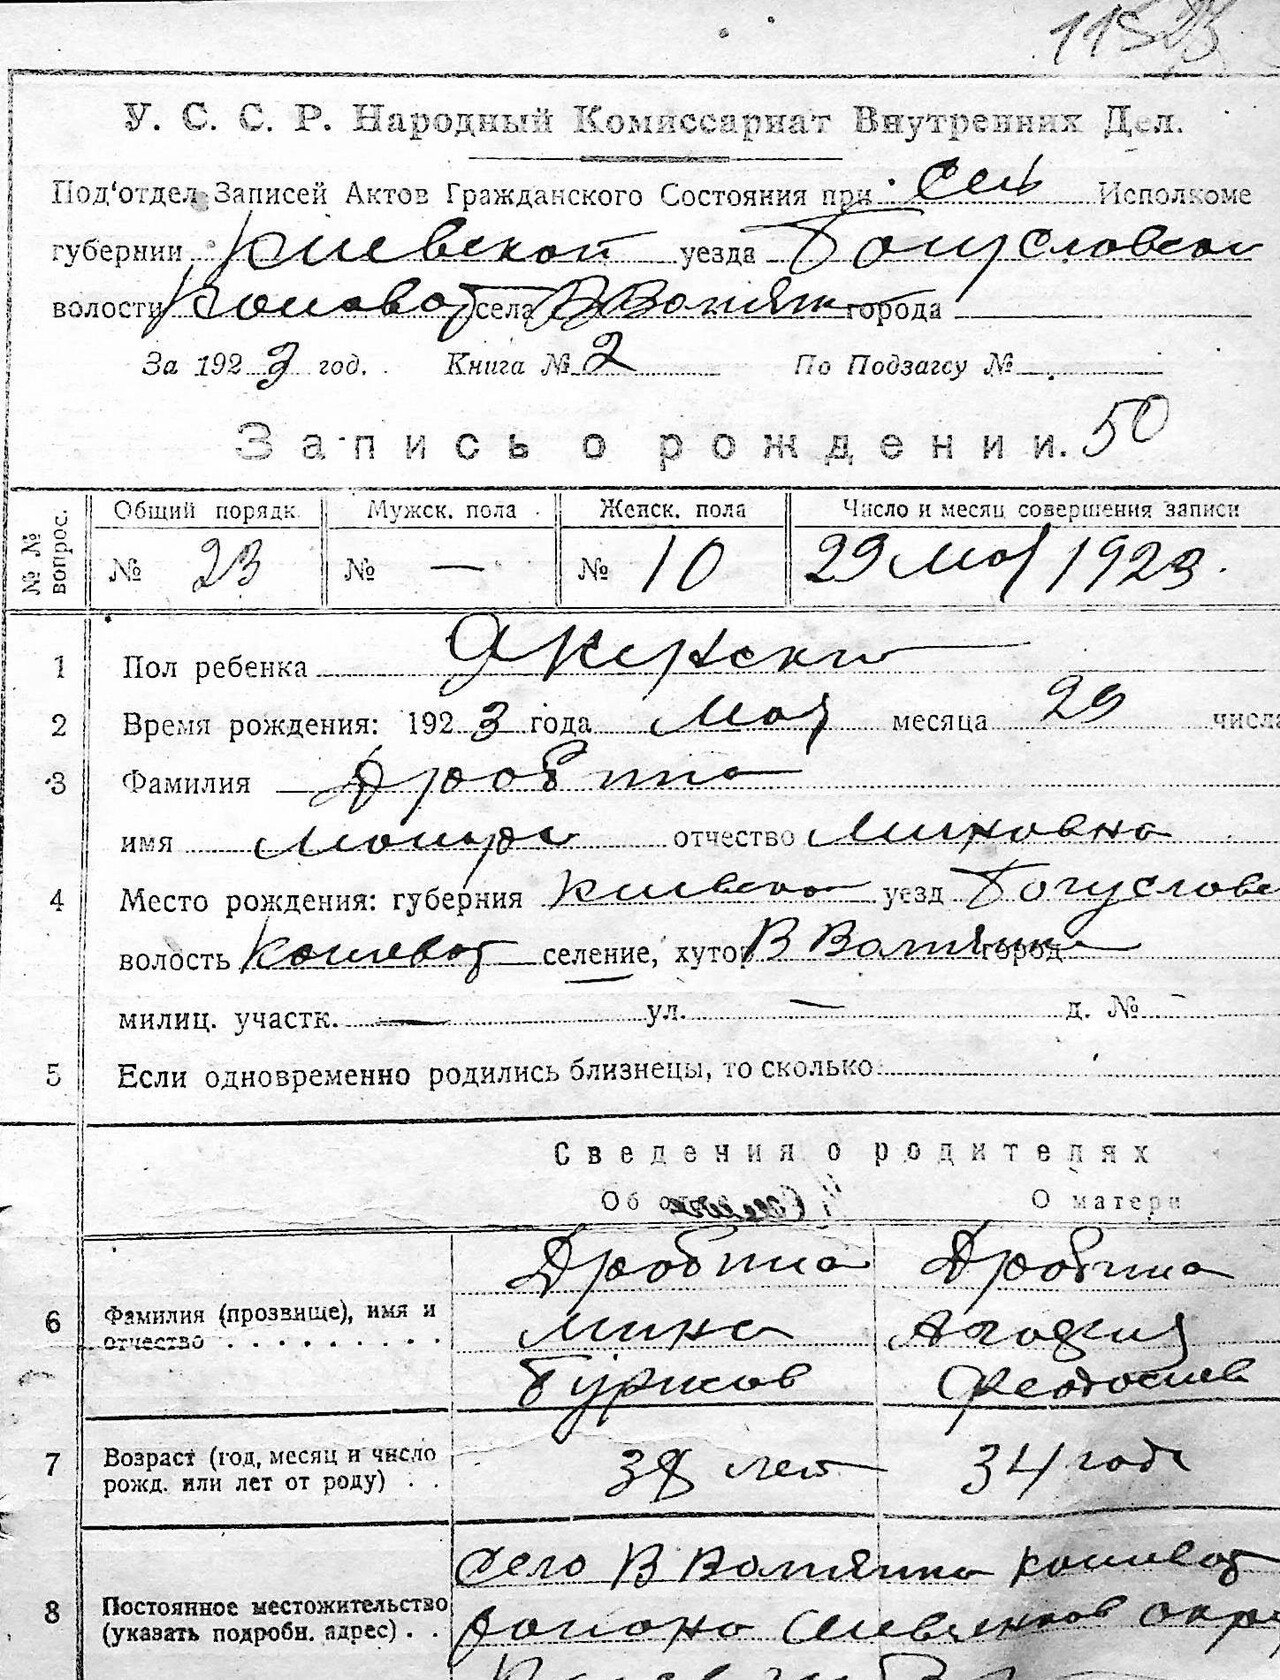 11523
У. С. С. Р. Народный Комиссариат Внутренних Дел.
Под‘отдел Записей Актов Гражданского Состояния при Сель Исполкоме
губернии Киевской уезда Богуславско
волости села города
За 1923 год. Книга № 2 По Подзагсу №
Запись о рождении. 50
№ № вопрос. Общий порядк Мужск. пола Женск. пола Число и месяц совершения записи
№ 23 № — № 10 29 мая 1923.
1 Пол ребенка Женский
2 Время рождения: 1923 года мая месяца 29 числа
3 Фамилия Дробина
имя отчество Миновна
4 Место рождения: губерния Киевская уезд Богуславс
волость Кошеват селение, хутор В Вотылівка город
милиц. участк. — ул. — д. № -
5 Если одновременно родились близнецы, то сколько
Сведения о родителях
Об О матери
6 Фамилия (прозвище), имя и отчество Дробина Дробина
Мина
Феодосиев
7 Возраст (год, месяц и число рожд. или лет от роду) 38 лет 34 года
8 Постоянное местожительство (указать подробн. адрес) Село В Кошеват
района окру